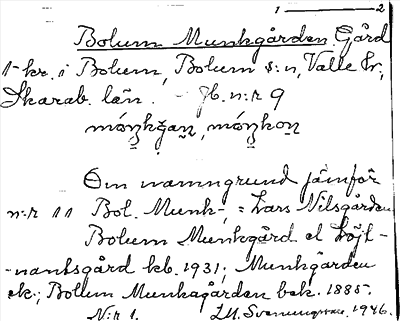 1 ——— 2
Bolum Munkgården. Gård
1 kr. i Bolum, Bolum s:n, Valle hr,
Skarab. län. Jb. n:r 9
Om namngrund jämför
n:r 11 Bol. Munk-, = Lars Nilsgården
Bolum Munkgård el Löjt-
-nantsgård kb. 1931; Munkgården
ek.; Bolum Munkagården bek. 1885.
N:r 1. 1946.